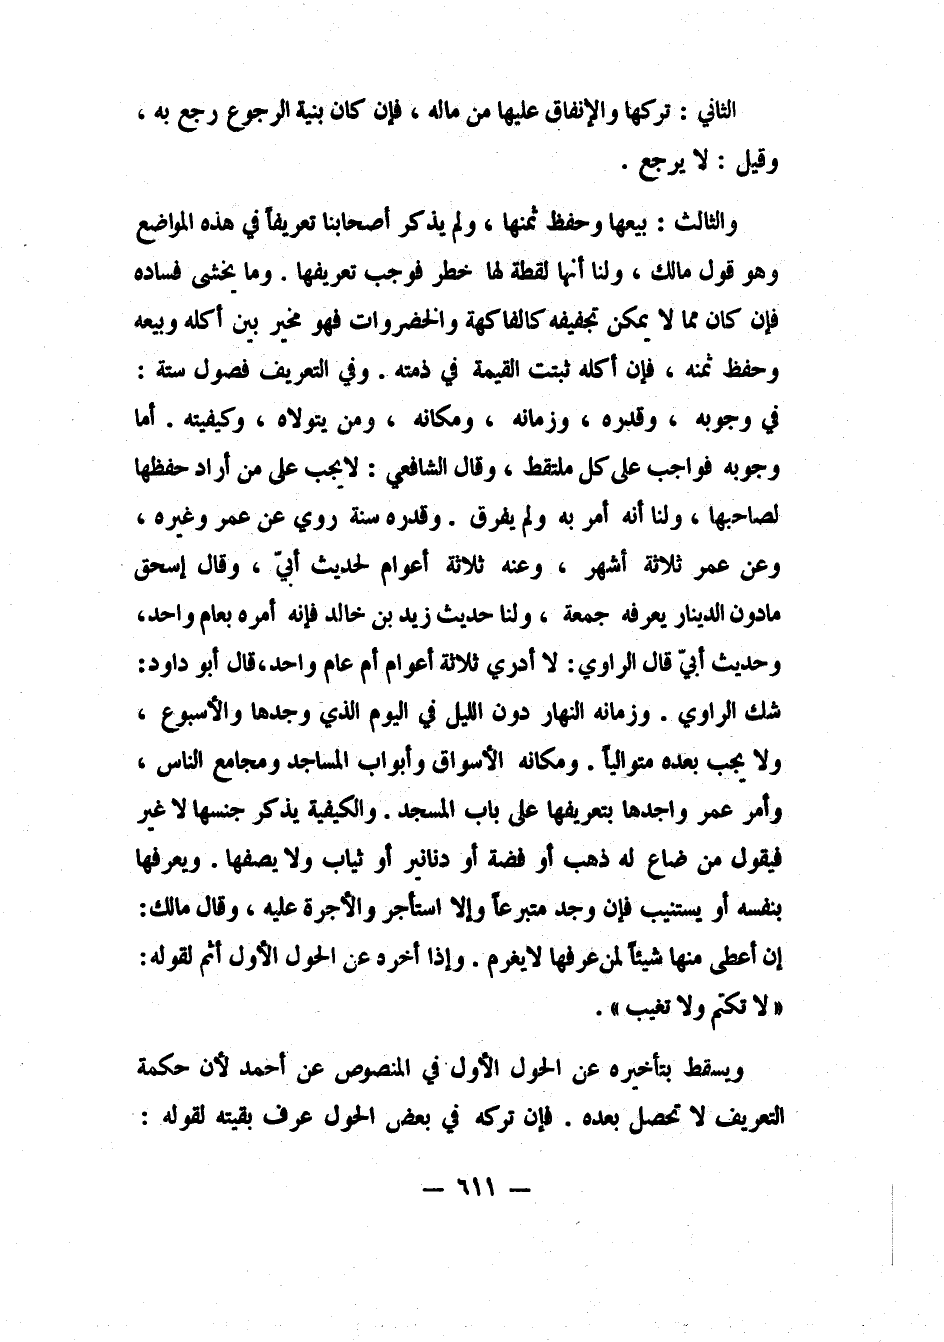 الثاني : تركها والإنفاق عليها من ماله ، فإن كان بنية الرجوع رجع به ،
وقيل : لا يرجع .
والثالث : بيعها وحفظ ثمنها ، ولم يذكر أصحابنا تعريفاً في هذه المواضع
وهو قول مالك ، ولنا أنها لقطة لها خطر فوجب تعريفها . وما يخشى فساده
فإن كان مما لا يمكن تجفيفه كالفاكهة والخضروات فهو مخير بين أكله وبيعه
وحفظ ثمنه ، فإن أكله ثبتت القيمة في ذمته . وفي التعريف فصول ستة :
في وجوبه ، وقدره ، وزمانه ، ومكانه ، ومن يتولاه ، وكيفيته . أما
وجوبه فواجب على كل ملتقط ، وقال الشافعي : لا يجب على من أراد حفظها
لصاحبها ، ولنا أنه أمر به ولم يفرق . وقدره سنة روي عن عمر وغيره ،
وعن عمر ثلاثة أشهر ، وعنه ثلاثة أعوام لحديث أبيّ ، وقال إسحق
مادون الدينار يعرفه جمعة ، ولنا حديث زيد بن خالد فإنه أمره بعام واحد،
وحديث أبيّ قال الراوي: لا أدري ثلاثة أعوام أم عام واحد،قال أبو داود:
شك الراوي . وزمانه النهار دون الليل في اليوم الذي وجدها والأسبوع ،
ولا يجب بعده متوالياً . ومكانه الأسواق وأبواب المساجد ومجامع الناس ،
وأمر عمر واجدها بتعريفها على باب المسجد . والكيفية يذكر جنسها لا غير
فيقول من ضاع له ذهب أو فضة أو دنانير أو ثياب ولا يصفها . ويعرفها
بنفسه أو يستنيب فإن وجد متبرعاً وإلا استأجر والأجرة عليه ، وقال مالك:
إن أعطى منها شيئاً لمن عرفها لايغرم . وإذا أخره عن الحول الأول أثم لقوله:
« لا تكتم ولا تغيب » .
ويسقط بتأخيره عن الحول الأول في المنصوص عن أحمد لأن حكمة
التعريف لا تحصل بعده . فإن تركه في بعض الحول عرف بقيته لقوله :
— ٦١١ —